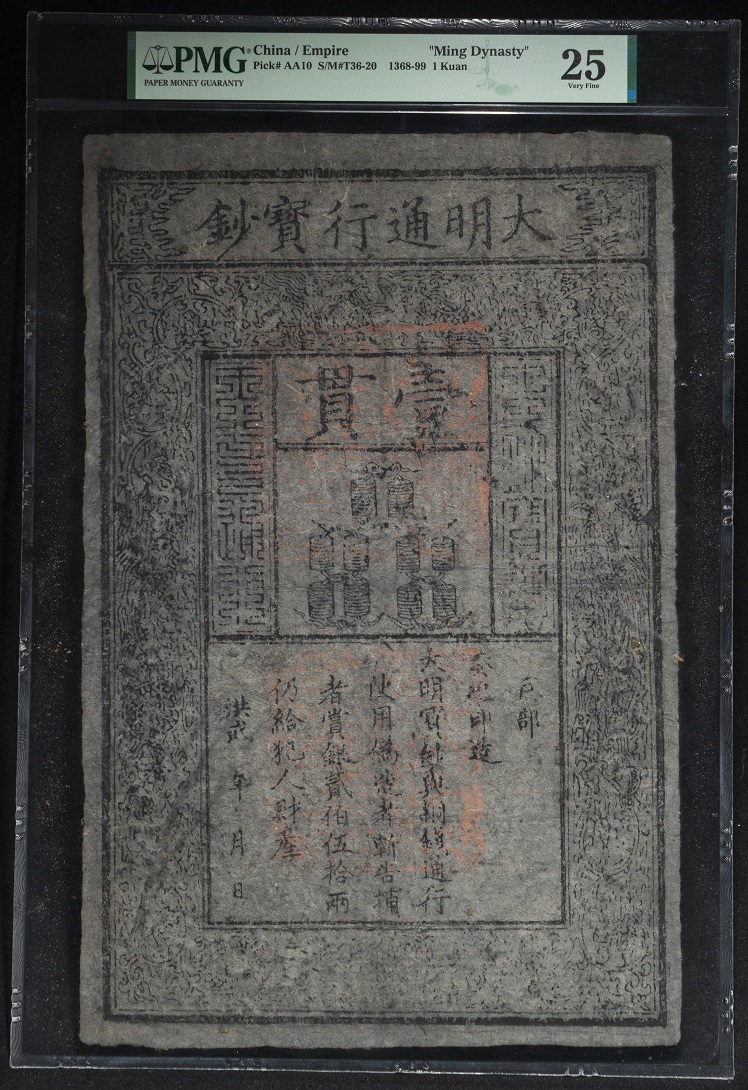 PMG
PAPER MONEY GUARANTY
China / Empire "Ming Dynasty"
Pick# AA10 S/M#T36-20 1368-99 1 Kuan
25
Very Fine
大明通行寶鈔
壹貫
戶部
奏准印造
大明寶鈔與銅錢通行
使用偽造者斬告捕
者賞銀貳伯伍拾兩
仍給犯人財產
洪武 年 月 日